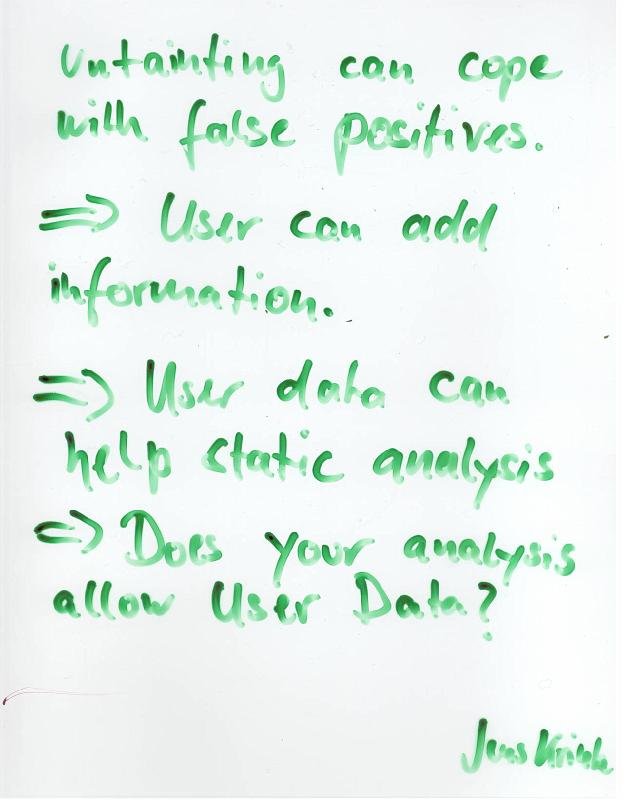 Untainting can cope
with false positives.
⇒ User can add
information.
⇒ User data can
help static analysis
⇒ Does your analysis
allow User Data?
Jens Krinke